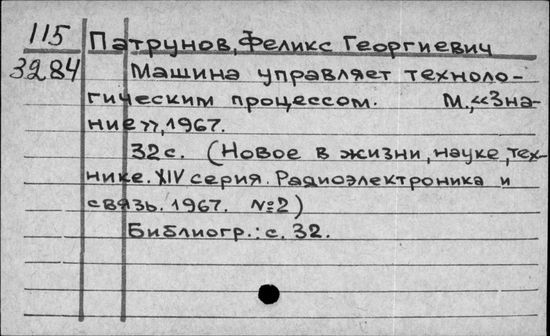 115
3284
Патрунов, Феликс Георгиевич
Машина управляет техноло-
гическим процессом. М., «Зна-
ние», 1967.
32с. (Новое в жизни, науке, тех-
нике. XIV серия. Радиоэлектроника и
связь. 1967. №2)
Библиогр.: с. 32.